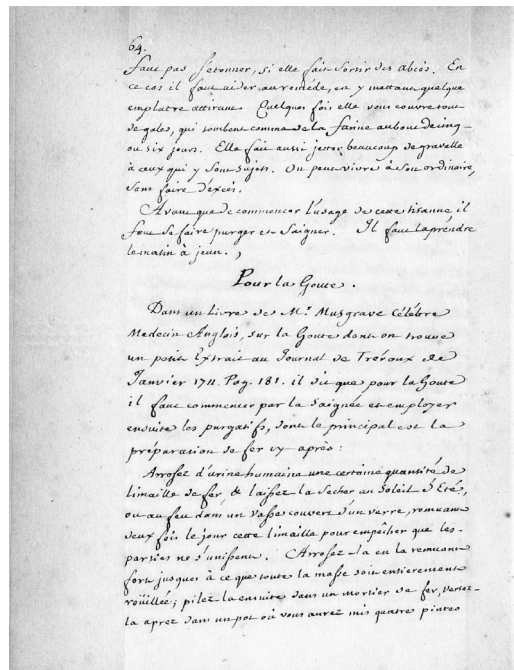 64.
faut pas s'étonner, si elle fait sortir des abcés. En
ce cas il faut aider au reméde, en y mettant quelque
emplatre attirant. Quelques fois elle vous couvre tout
de gales, qui tombent comme de la farine au bout de cinq
ou six jours. Elle fait aussi jetter beaucoup de gravelle
à ceux qui y sont sujets. On peut vivre à son ordinaire,
sans faire d'excés.
Avant que de commencer l'usage de cette tisanne il
faut se faire purger et saigner. Il faut la prendre
le matin à jeun.
Pour la Goute.
Dans un Livre de Mr. Musgrave Célébre
Medecin Anglois, sur la Goute dont on trouve
un petit Extrait au Journal de Trévoux de
Janvier 1711. Pag. 181. il dit que pour la Goute
il faut commencer par la saignée et employer
ensuite les purgatifs, dont le principal est la
préparation de fer cy aprés:
Arrosez d'urine humaine une certaine quantité de
limaille de fer, & laissez la secher au soleil d'Eté,
ou au feu dans un Vasse couvert d'un verre, remuant
deux fois le jour cette limaille pour empêcher que les
parties ne s'unissent. Arrosez-la en la remuant
fort jusques à ce que toute la masse soit entierement
roüillée; pilez la ensuite dans un mortier de fer, versez-
la aprez dans un pot où vous aurez mis quatre pintes